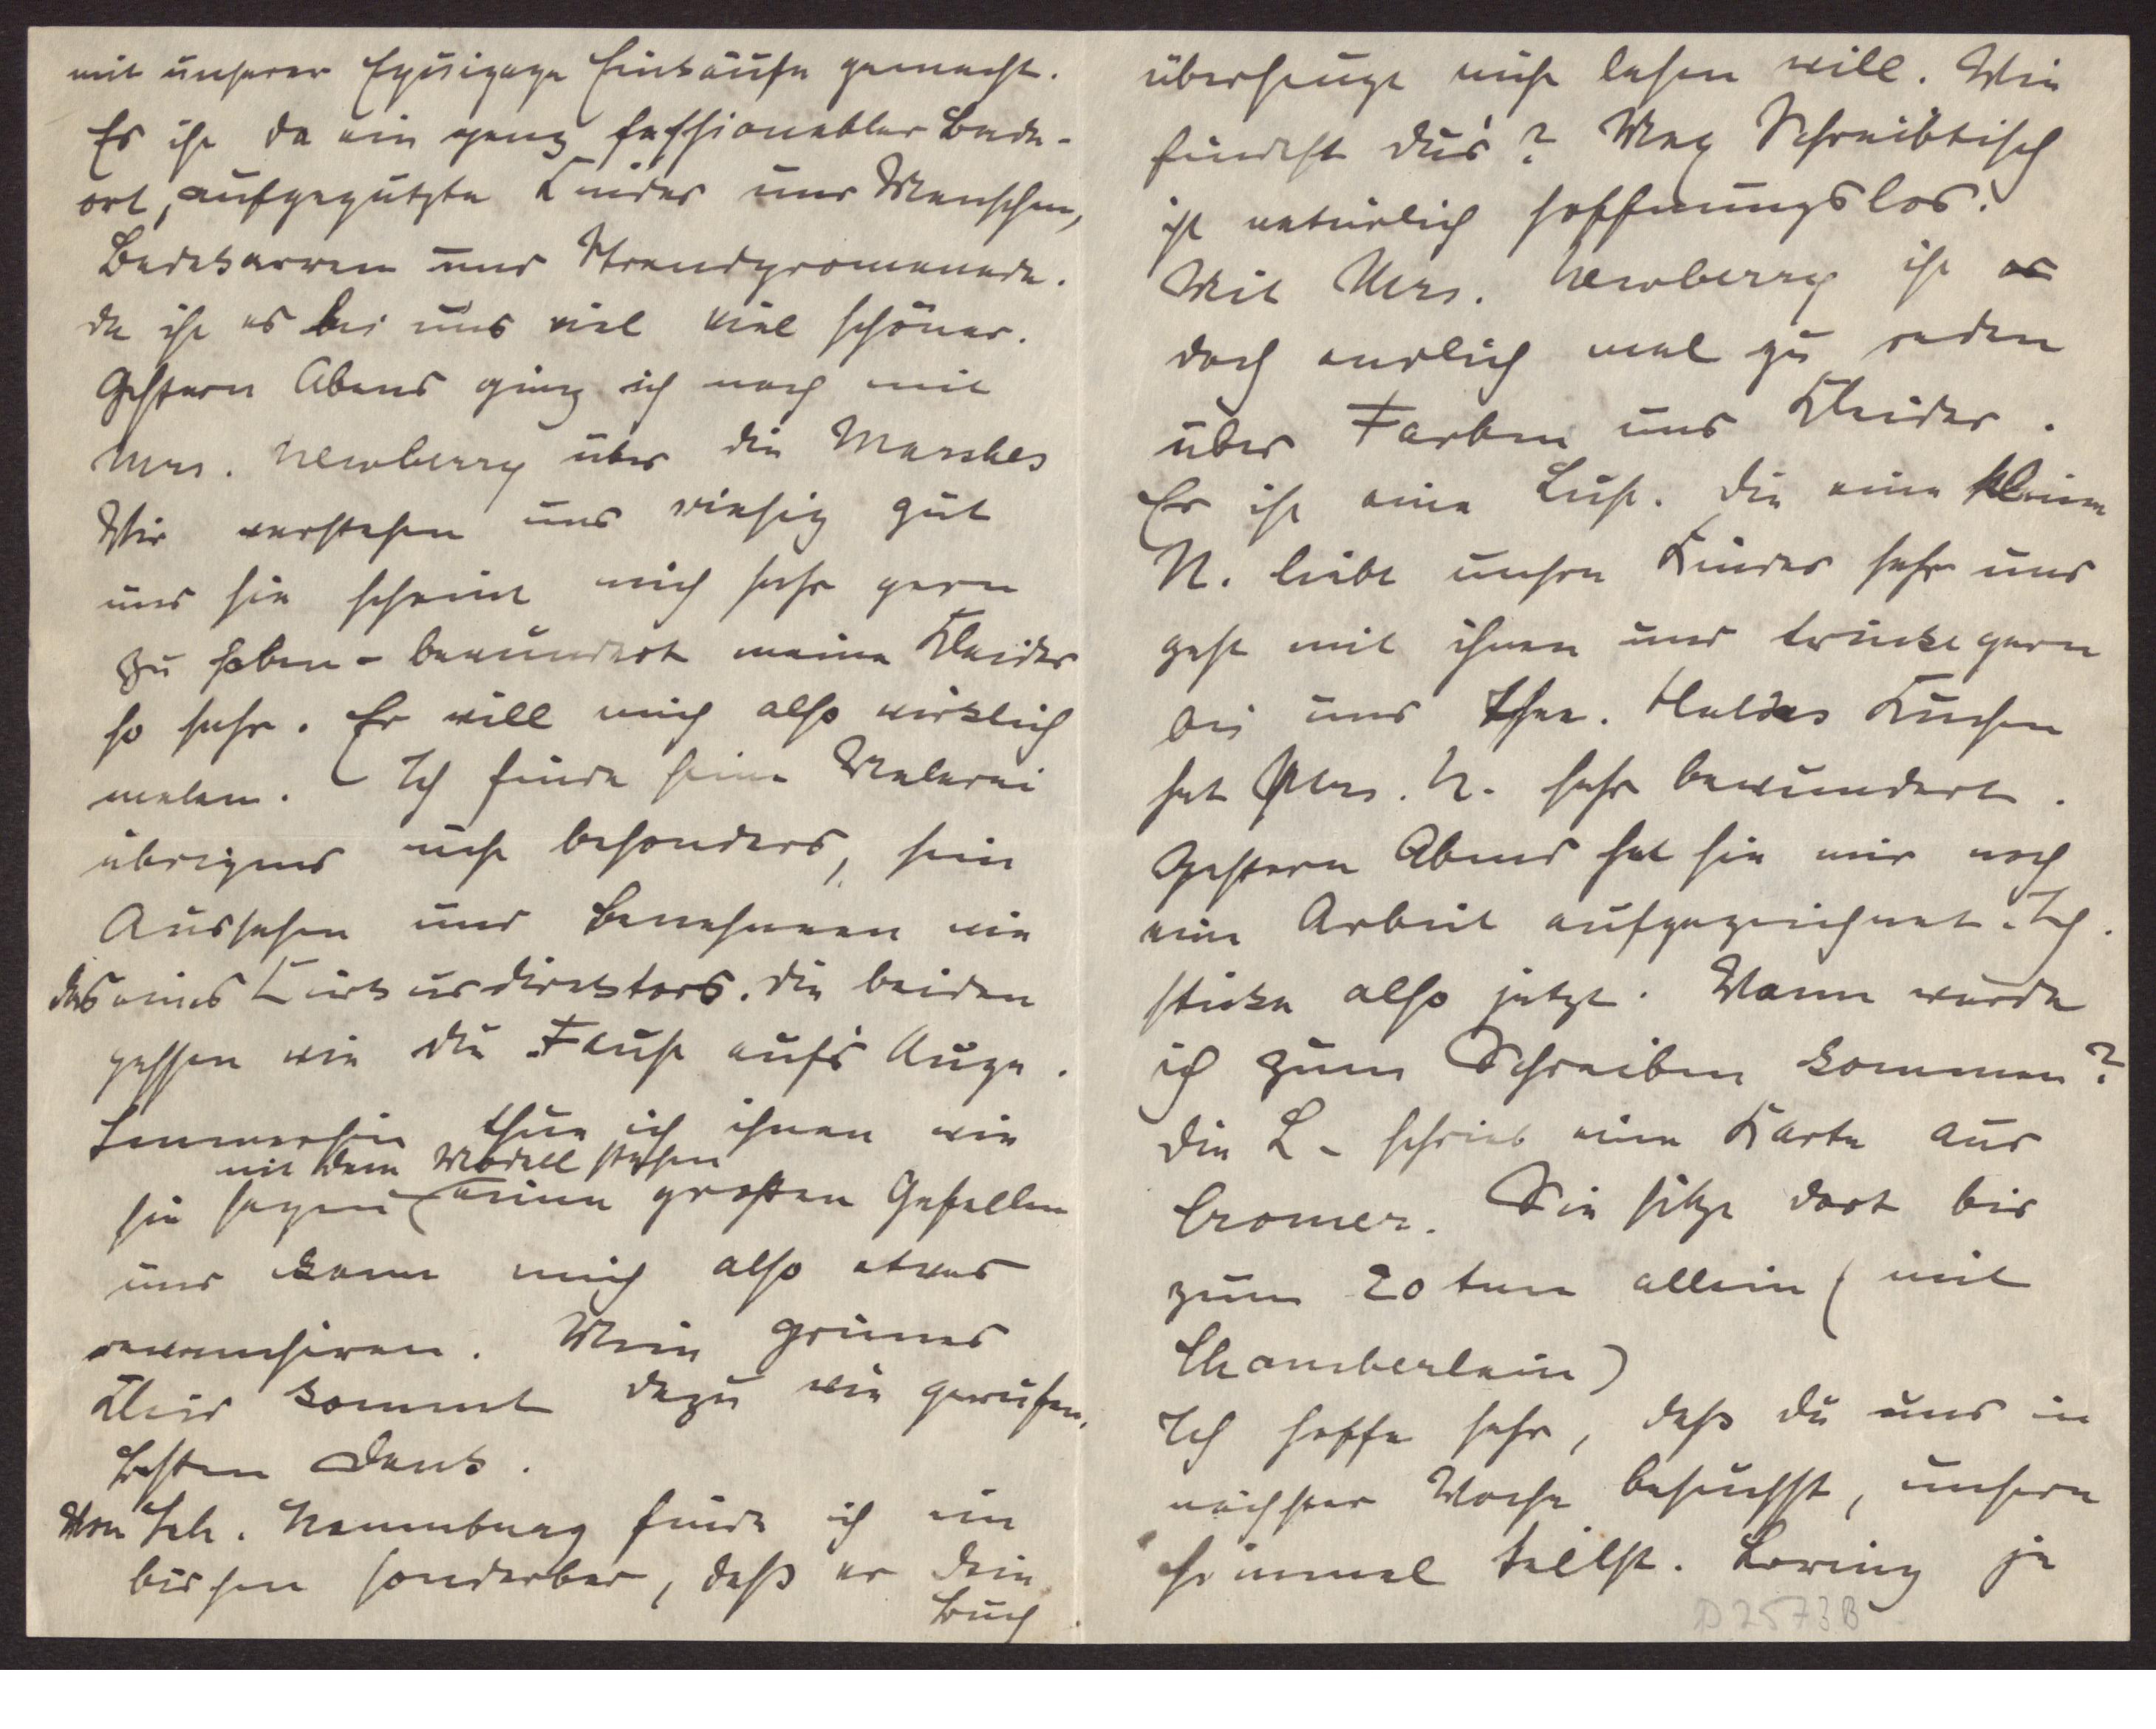 mit unserer Equipage Einkäufe gemacht.
Es ist da ein ganz fassionabler Bade-
ort, aufgeputzte Kinder und Menschen,
Badekarren und Strandpromenade.
da ist es bei uns viel viel schöner.
Gestern Abend ging ich noch mit
Mrs. Newberry über die Marshes
Wir verstehen uns riesig gut
und sie scheint mich sehr gern
zu haben - bewundert meine Kleider
so sehr. Er will mich also wirklich
malen. Ich finde seine Malerei
übrigens nicht besonders, sein
Aussehen und Benehmen wie
das eines Zirkusdirektors. die beiden
passen wie die Faust auf's Auge.
Immerhin thue ich ihnen wie
mit dem Modell stehen
sie sagen einen großen Gefallen
und kann mich also etwas
revanchiren. Mein grünes
Kleid kommt dazu wie gerufen.
besten Dank.
Von Sch. Naumburg finde ich ein
bischen sonderbar, daß er dein
Buch
überhaupt nicht lesen will. Wie
findest du's? May Schreibtisch
ist natürlich hoffnungslos.
Mit Mrs. Newberry ist es
doch endlich mal zu reden
über Farben und Kleider.
Es ist eine Lust. die eine kleine
N. liebt unsre Kinder sehr und
geht mit ihnen und trinkt gern
bei uns Thee. Huldas Kuchen
hat Mrs. N. sehr bewundert.
Gestern Abend hat sie mir noch
eine Arbeit aufgezeichnet. Ich
sticke also jetzt. Wann werde
ich zum Schreiben kommen?
die L. schrieb eine Karte aus
Cromer. Sie sitzt dort bis
zum 20ten allein (mit
Chamberlain)
Ich hoffe sehr, daß du uns in
nächster Woche besuchst, unsern
Himmel teilst. Bring ja
D2573B